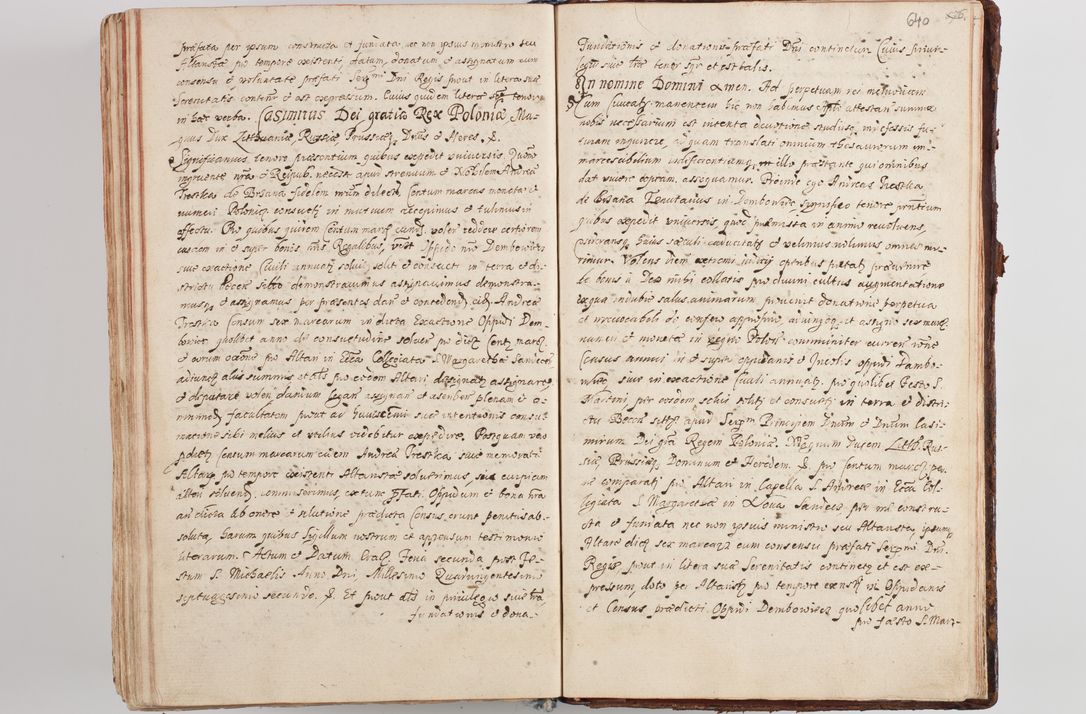 præfata per ipsum constructa et fundata, nec non ipsius ministro seu
Altaristæ pro tempore existenti, datum, donatum et assignatum cum
consensu et voluntate præfati Serenmi Dni Regis prout in litera suæ
Serenitatis contentr et est expressum. Cuius quidem literæ tenor
in hæc verba. Casimirus Dei gratia Rex Poloniæ Ma-
gnus Dux Lithuaniæ, Russiæ Prussiæq Dnus et Hæres &.
Significamus tenore præsentium quibus expedit universis. Quomo
ingruente nra et Reipub. necesste apud strenuum et Nobilem Andream
Trestka de Brsana fidelem nrum dilect. Centum marcas monetæ et
numeri Poloniq consueti in mutuum recepimus et tulimus in
effectu. Pro quibus quidem Centum marcis volen reddere certiorem
eundem in et super bonis nris Regalibus, videlt Oppido nro Dembowiecz
sive exactione Civili annuatq solui solit et consueti in terra et di-
strictu Becen demonstravimus assignavimus demonstra-
musq et assignamus per præsentes dan et conceden eidem Andreæ
Trestka Censum sex marcarum in dicta Exactione Oppidi Dem-
boviec quolibet anno de consuetudine solver pro dict Cent marc
et eorum oxone pro Altari in Ecca Collegiata S. Margarethæ Sandecen
adiunct aliis summis et pro eodem Altari designatq assignare
et deputare volen dantum assignan et ascriben plenam et o-
mnimod facultatem prout ad huiuscemi suæ intentionis consu-
mationem sibi melius et utilius videbitur expedire. Postquam vero
pdictq Censum marcarum eidem Andreæ Trestkæ, sive memorati
Altaris pro tempore existenti Altaristæ soluerimus, sive cuipiam
alteri soluendq commiserimus extunc pfati Oppidum et bona nra
ad dicta ab onere et solutione prædicta Census erunt penitus ab-
soluta, harum quibus Sigillum nostrum est appensum testimonio
literarum. Actum et Datum Feria secunda post Fe-
stum S. Michaelis Anno Dni Millesimo Quadringentesimo
septuagesimo secundo. &. Et prout in privilegio suæ
fundationis et dona-
640
Funditionis et donationis præfati Dni continetur Cuius privi-
legii suæ tenor sqr et est talis.
In nomine Domini Amen. Ad perpetuam rei memoriam
Cum Civitatq manentem hic non habemus Apto attestan summæ
nobis necessarium est intenta devotione studiisq indefessis fu-
turam enquirere, ad quam translati omnium thesaurorum im-
marcescibilium indeficientiamq illo præstante qui omnibus
dat vivere optatam assequamur. Proinde ego Andreas Trestka
de Brsana Tenutarius in Dembowiec significo tenore præsntium
quibus expedit universis, quod præmissa in animo revoluens,
huius sæculi caducitatq et velimus nolimus omnes mo-
rimur. Volens diem extremi iudicii operibus pietatq prævenire
de bonis a Deo mihi collatis pro divini cultus augmentatione
exqua indubie salus animarum provenit donatione perpetua
et irrevocabili do confero approprio, adiungoq et assigno sex marc
numeri et monetæ in regno Poloni communiter curren rone
Census annui in et super oppidanis et Incolis oppidi Dembo-
wiecz, sive in exactione Civili annuatq pro quolibet Festo S.
Martini, per eosdem solui soliti et consueti in terra et distri-
ctu Becen apud Serenm Principem Dnum et Dnum Casi-
mirum Dei gra Regem Poloniæ, Magnum Ducem Lithb. Rus-
siæ, Prussiæq Dominum et Heredem. &. pro Centum marc per
me comparatq pro Altari in Capella S. Andreæ in Ecca Col-
legiata S. Margarethæ in Nova Sandecz per me constru-
cta et fundata nec non ipsius ministro seu Altarista, ipsumq
Altare dictq sex marcarq cum consensu præfati Serenmi Dni
Regis prout in litera suæ Serenitatis continetq et est ex-
pressum, doto per Altaristq pro tempore existen oppidanis
et Census prædicti Oppidi Dembowiecz quolibet anno
pro fæsto S. Mar-